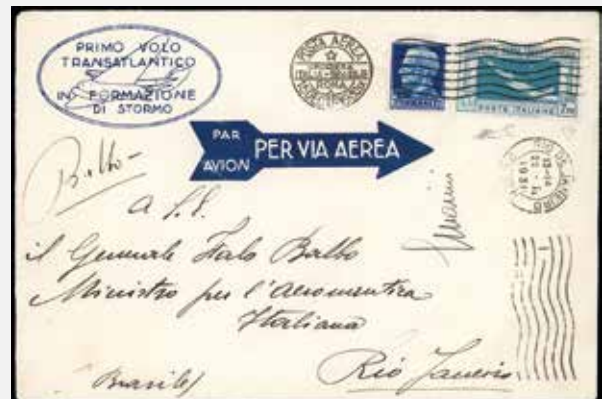 PRIMO VOLO
TRANSATLANTICO
IN FORMAZIONE
DI STORMO
POSTA AEREA
ROMA
POSTE ITALIANE
PAR
AVION
PER VIA AEREA
RIO DE JANEIRO
1931
Balbo
a S. E.
il Generale Italo Balbo
Ministro per l'Aeronautica
Italiana
Rio Janeiro
Brasile